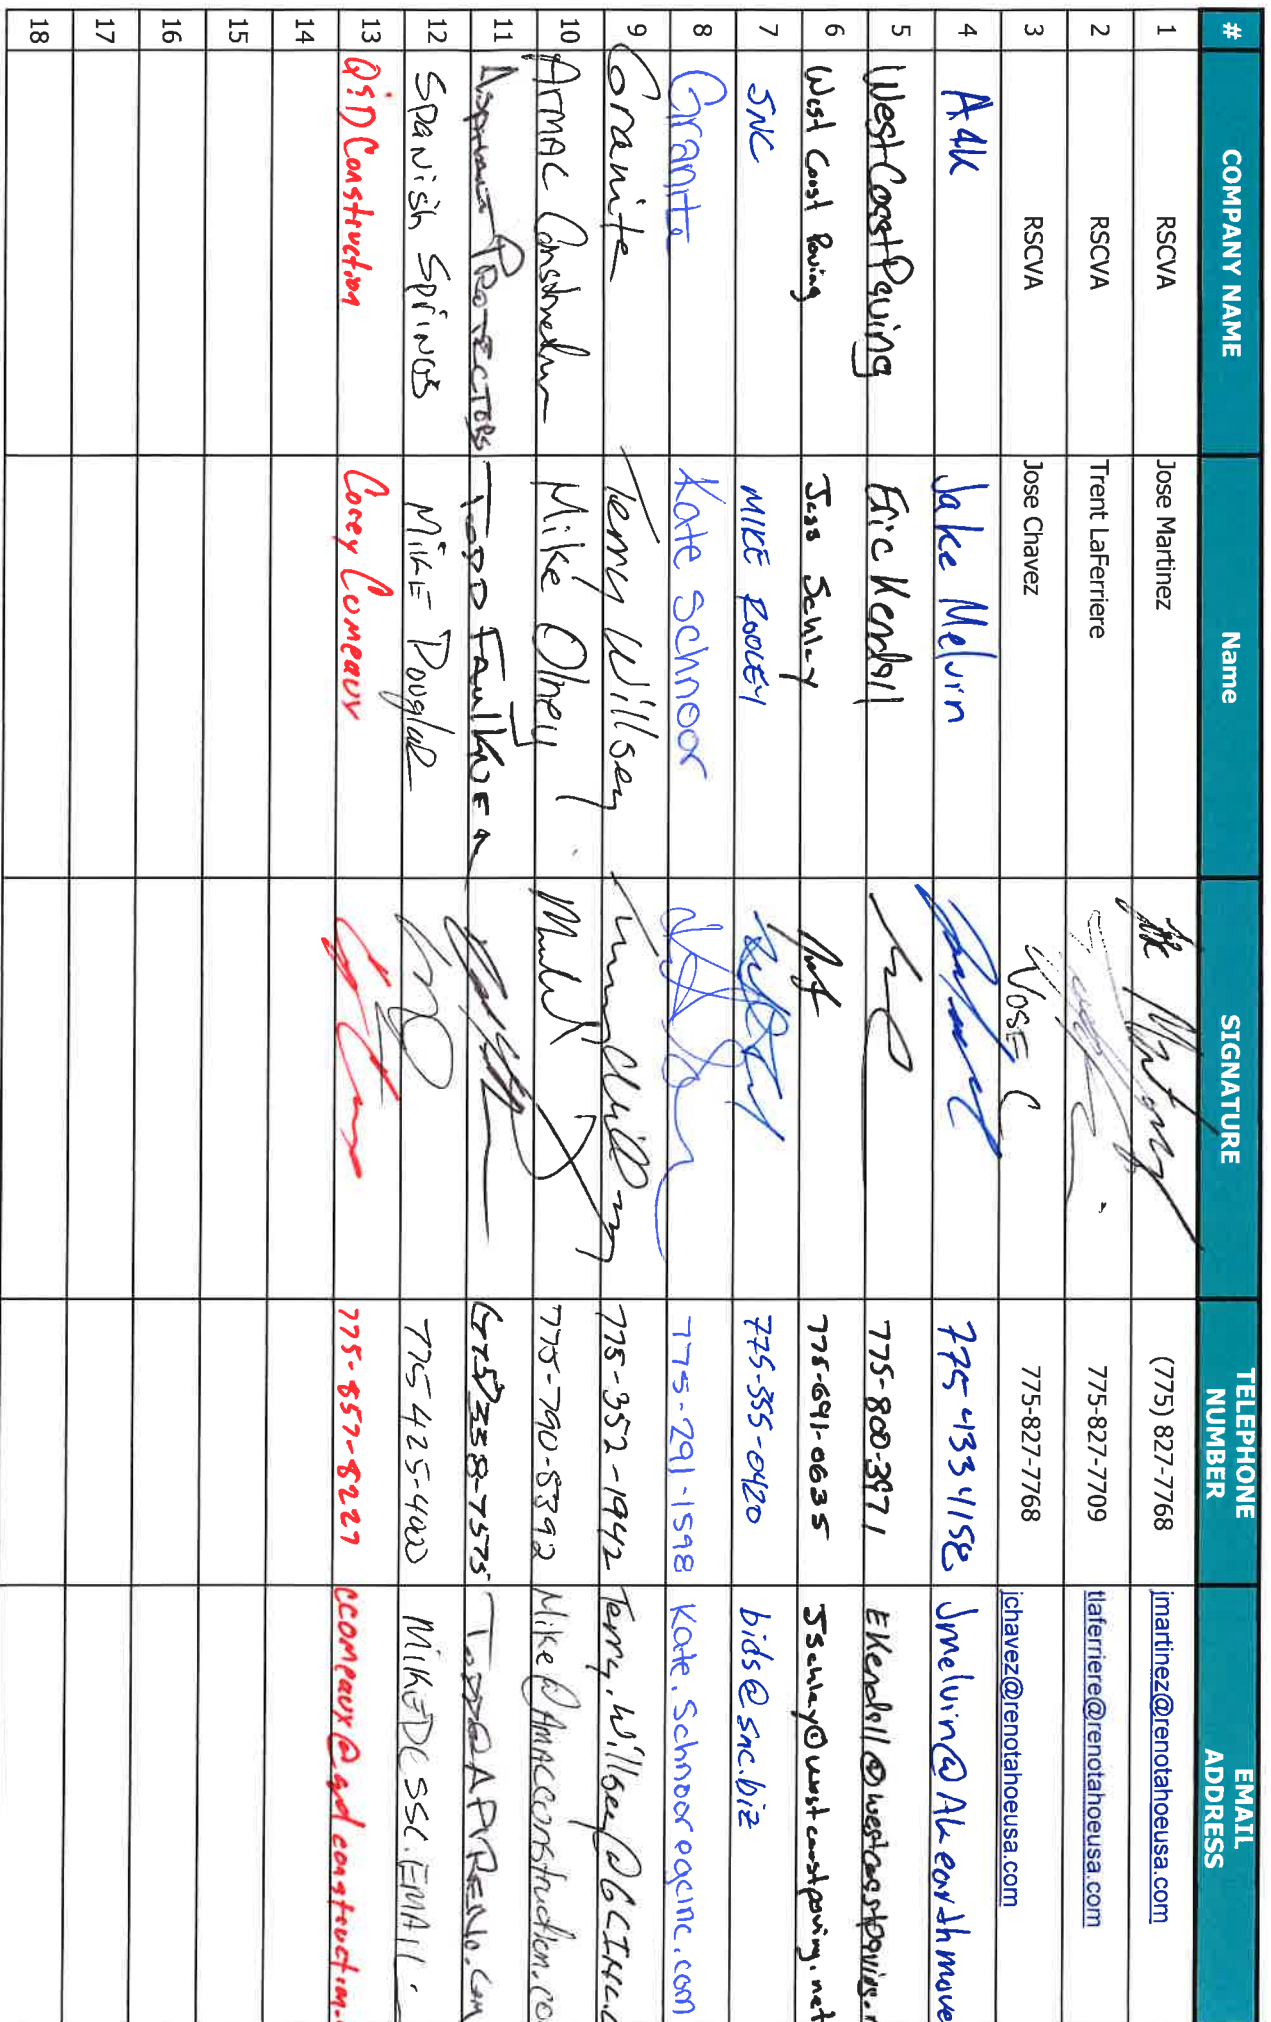 # COMPANY NAME Name SIGNATURE TELEPHONE NUMBER EMAIL ADDRESS
1 RSCVA Jose Martinez (775) 827-7768 jmartinez@renotahoeusa.com
2 RSCVA Trent LaFerriere 775-827-7709 tlaferriere@renotahoeusa.com
3 RSCVA Jose Chavez Jose C 775-827-7768 jchavez@renotahoeusa.com
4 A&K Jake Melvin 775-4334158 Jmelvin@Akearthmove
5 West Coast Paving Eric Kendall 775-800-3971 EKendall@westcoastpaving.n
6 West Coast Paving Jess Schlay 775-691-0635 Jschlay@westcoastpaving.net
7 SNC MIKE ROOLEY 775-355-0420 bids@snc.biz
8 Granite Kate Schnoor 775-291-1598 Kate.Schnoor@gcinc.com
9 Granite Terry Willsey 775-352-1942 Terry.Willsey@GCINC.C
10 ArMAC Construction Mike Olney 775-790-8392 Mike@AMACConstruction.co
11 Asphalt PROTECTORS TODD FAULKNER (775) 358-7575 TODD@APIRENO.Com
12 SPANISH SPRINGS MIKE Douglas 775 425-4000 MIKED@SSC.EMAIL
13 Q&D Construction Corey Comeaux 775-857-8227 ccomeaux@qdconstruction.
14
15
16
17
18